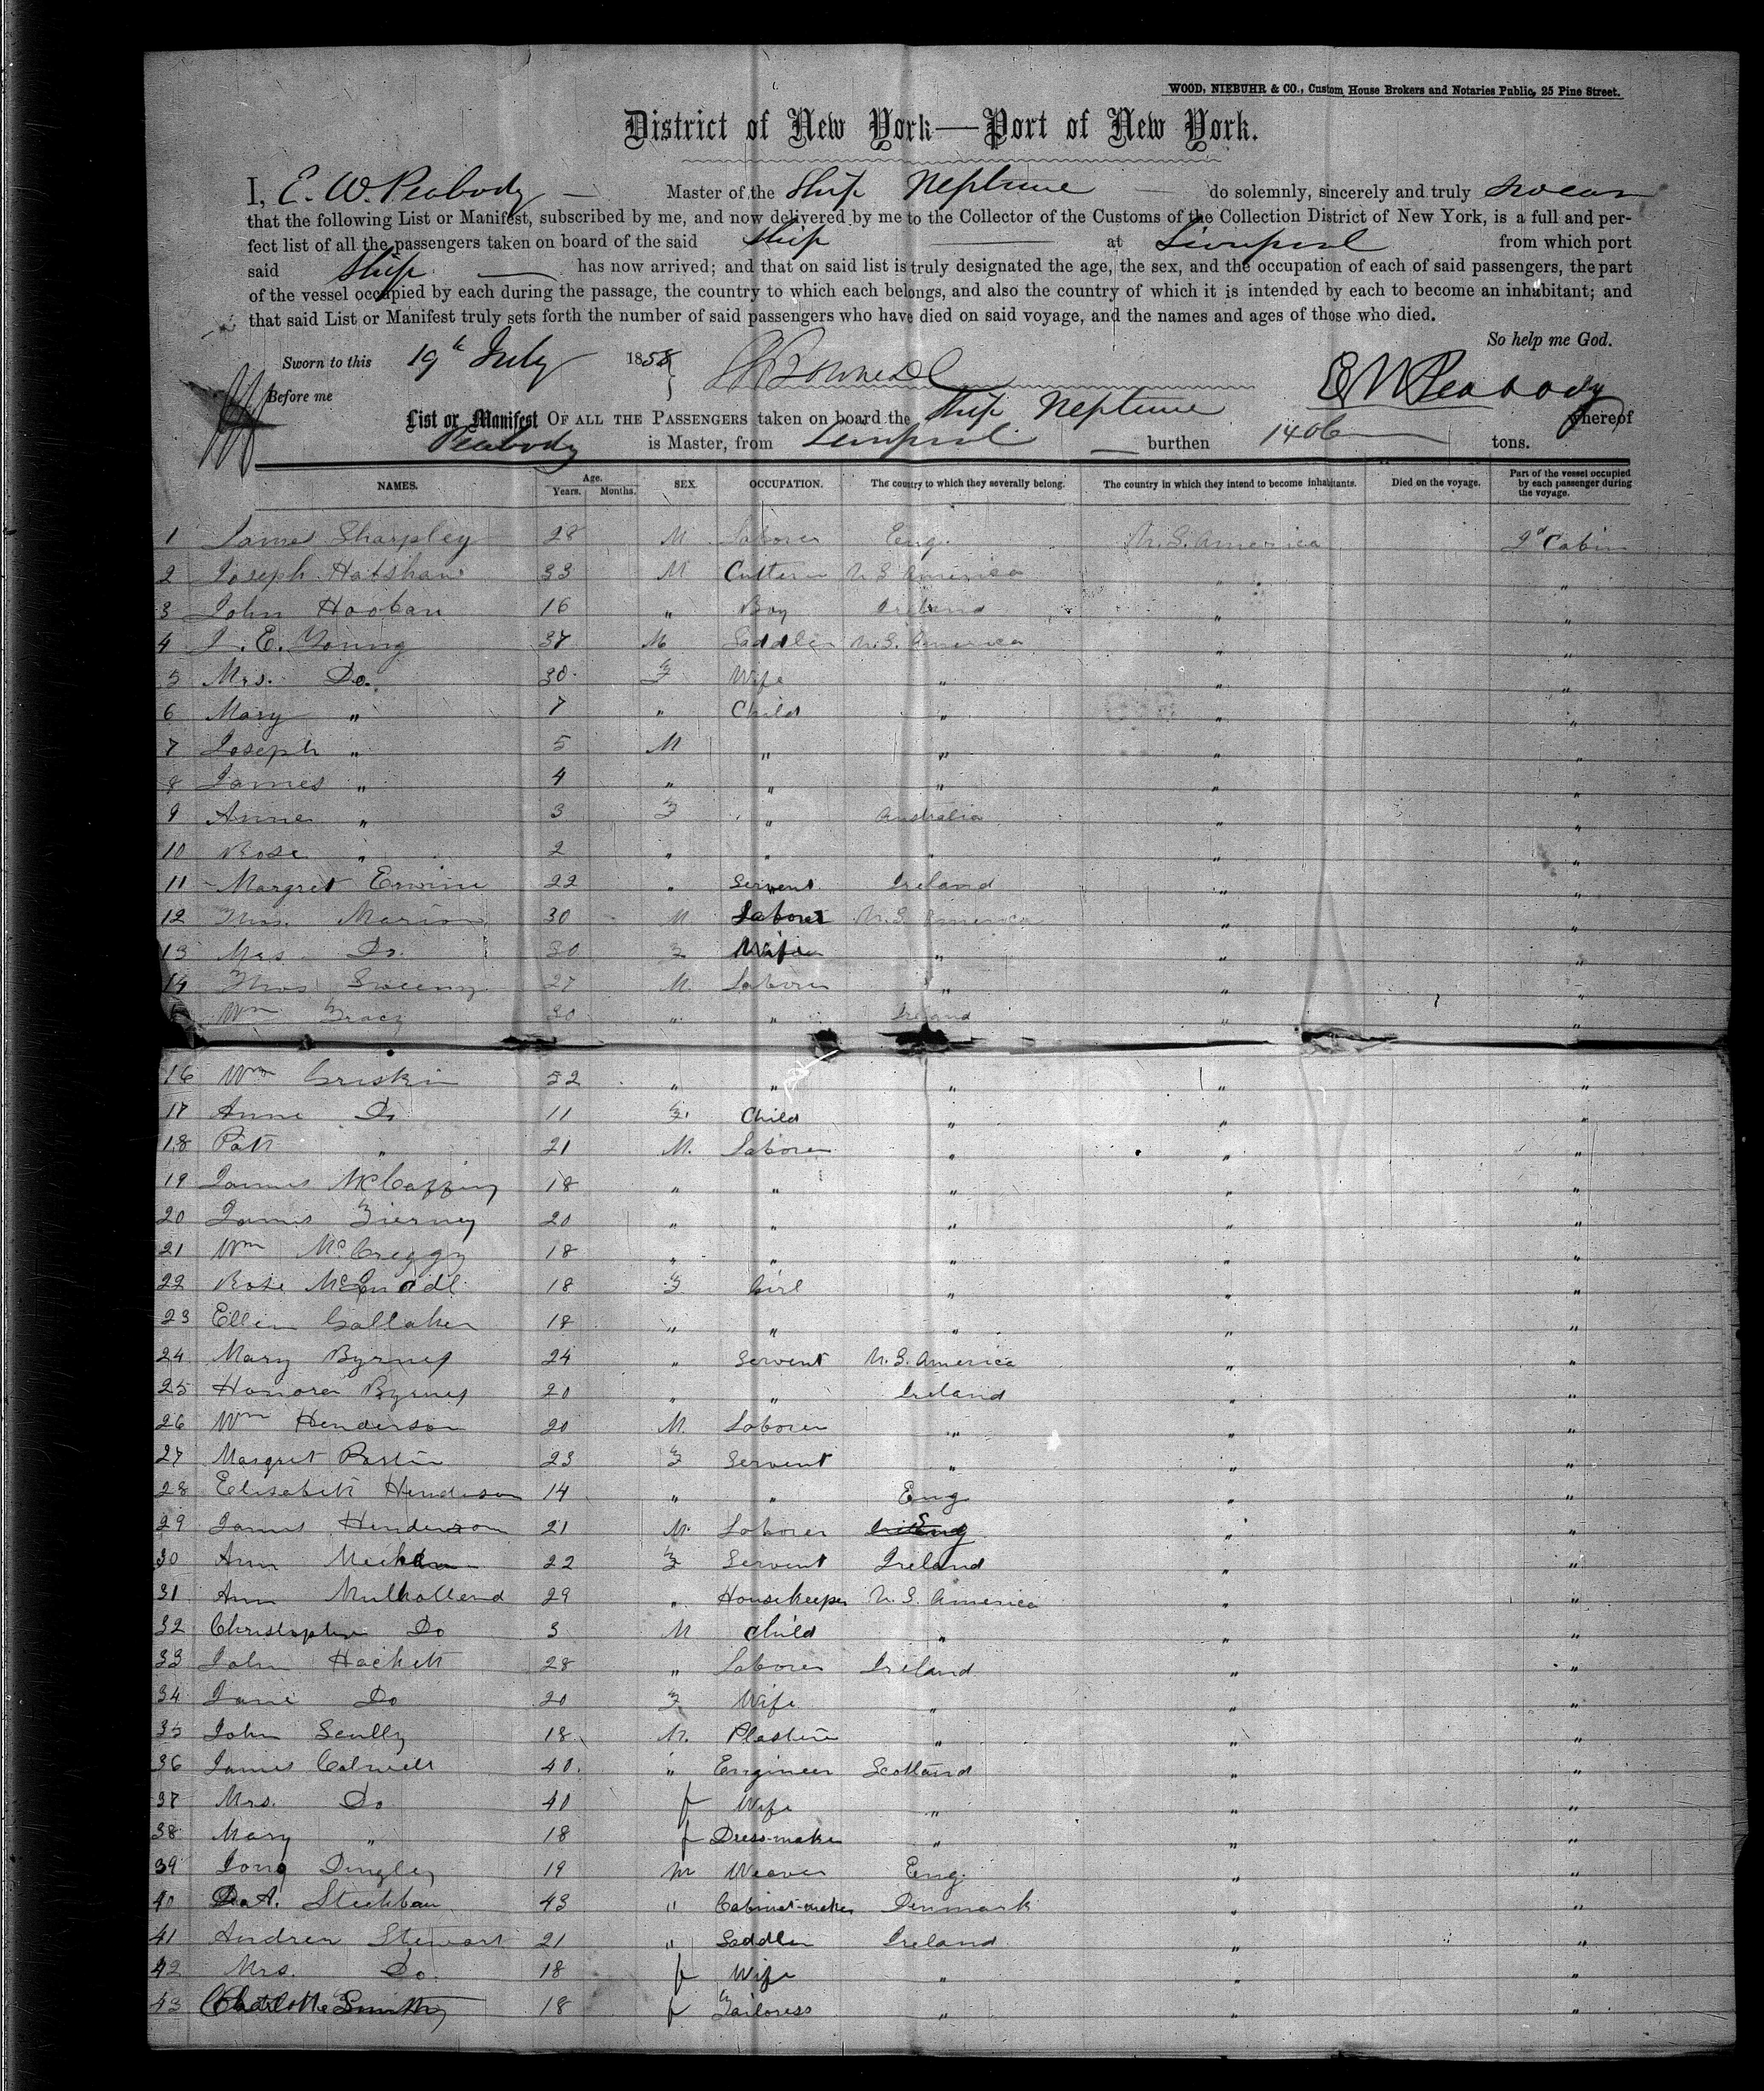 WOOD, NIEBUHR & CO., Custom House Brokers and Notaries Public, 25 Pine Street.
District of New York—Port of New York.
I, E. W. Peabody — Master of the Ship Neptune — do solemnly, sincerely and truly swear
that the following List or Manifest, subscribed by me, and now delivered by me to the Collector of the Customs of the Collection District of New York, is a full and per-
fect list of all the passengers taken on board of the said Ship — at Liverpool from which port
said Ship — has now arrived; and that on said list is truly designated the age, the sex, and the occupation of each of said passengers, the part
of the vessel occupied by each during the passage, the country to which each belongs, and also the country of which it is intended by each to become an inhabitant; and
that said List or Manifest truly sets forth the number of said passengers who have died on said voyage, and the names and ages of those who died.
So help me God.
Sworn to this 19th July 1858
Before me E W Peabody
List or Manifest OF ALL THE PASSENGERS taken on board the Ship Neptune whereof
Peabody is Master, from Liverpool — burthen 1406 tons.
NAMES. Age. Years. Months. SEX. OCCUPATION. The country to which they severally belong. The country in which they intend to become inhabitants. Died on the voyage. Part of the vessel occupied by each passenger during the voyage.
1 James Sharpley 28 M Laborer Eng. U.S. America 2d Cabin
2 Joseph 33 M U S America " "
3 John Hooban 16 " Boy Ireland " "
4 J. E. Young 37 M Saddler U.S. America " "
5 Mrs. Do. 30 F Wife " " "
6 Mary " 7 " Child " " "
7 Joseph " 5 M " " " "
8 James " 4 " " " " "
9 Anne " 3 F " Australia " "
10 Rose " 2 " " " " "
11 Margret Erwine 22 " Servent Ireland " "
12 Thos. Marion 30 M Laborer U.S. America " "
13 Mrs. Do. 30 F Wife " " "
14 Thos Sweeny 27 M. Laborer " " "
Wm Tracy 30 " " Ireland " "
16 Wm Griskin 52 " " " " "
17 Anne Do 11 F. Child " " "
18 Patk " 21 M. Laborer " " "
19 James McCaffiny 18 " " " " "
20 James Tierney 20 " " " " "
21 Wm McCreggy 18 " " " " "
22 Rose 18 F Girl " " "
23 Ellen Gallaher 18 " " " " "
24 Mary Byrnes 24 " Servent U.S. America " "
25 Honora Byrnes 20 " " Ireland " "
26 Wm Henderson 20 M. Laborer " " "
27 Margret 23 F Servent " " "
28 Elisabeth Henderson 14 " " Eng " "
29 James Henderson 21 M. Laborer Eng " "
30 Ann Meehan 22 F Servent Ireland " "
31 Ann Mulholland 29 " Housekeeper U.S. America " "
32 Christopher Do 3 M Child " " "
33 John Hackett 28 " Laborer Ireland " "
34 Jane Do 20 F Wife " " "
35 John Scully 18 M. Plasterer " " "
36 James Colwell 40. " Engineer Scotland " "
37 Mrs. Do 40 f Wife " " "
38 Mary " 18 f Dress-maker " " "
39 Dingley 19 m Weaver Eng. " "
40 43 " Cabinet-maker Denmark " "
41 Andrew Stewart 21 " Saddler Ireland " "
42 Mrs. Do. 18 f Wife " " "
43 Charlotte Smith 18 f Tailoress " " "